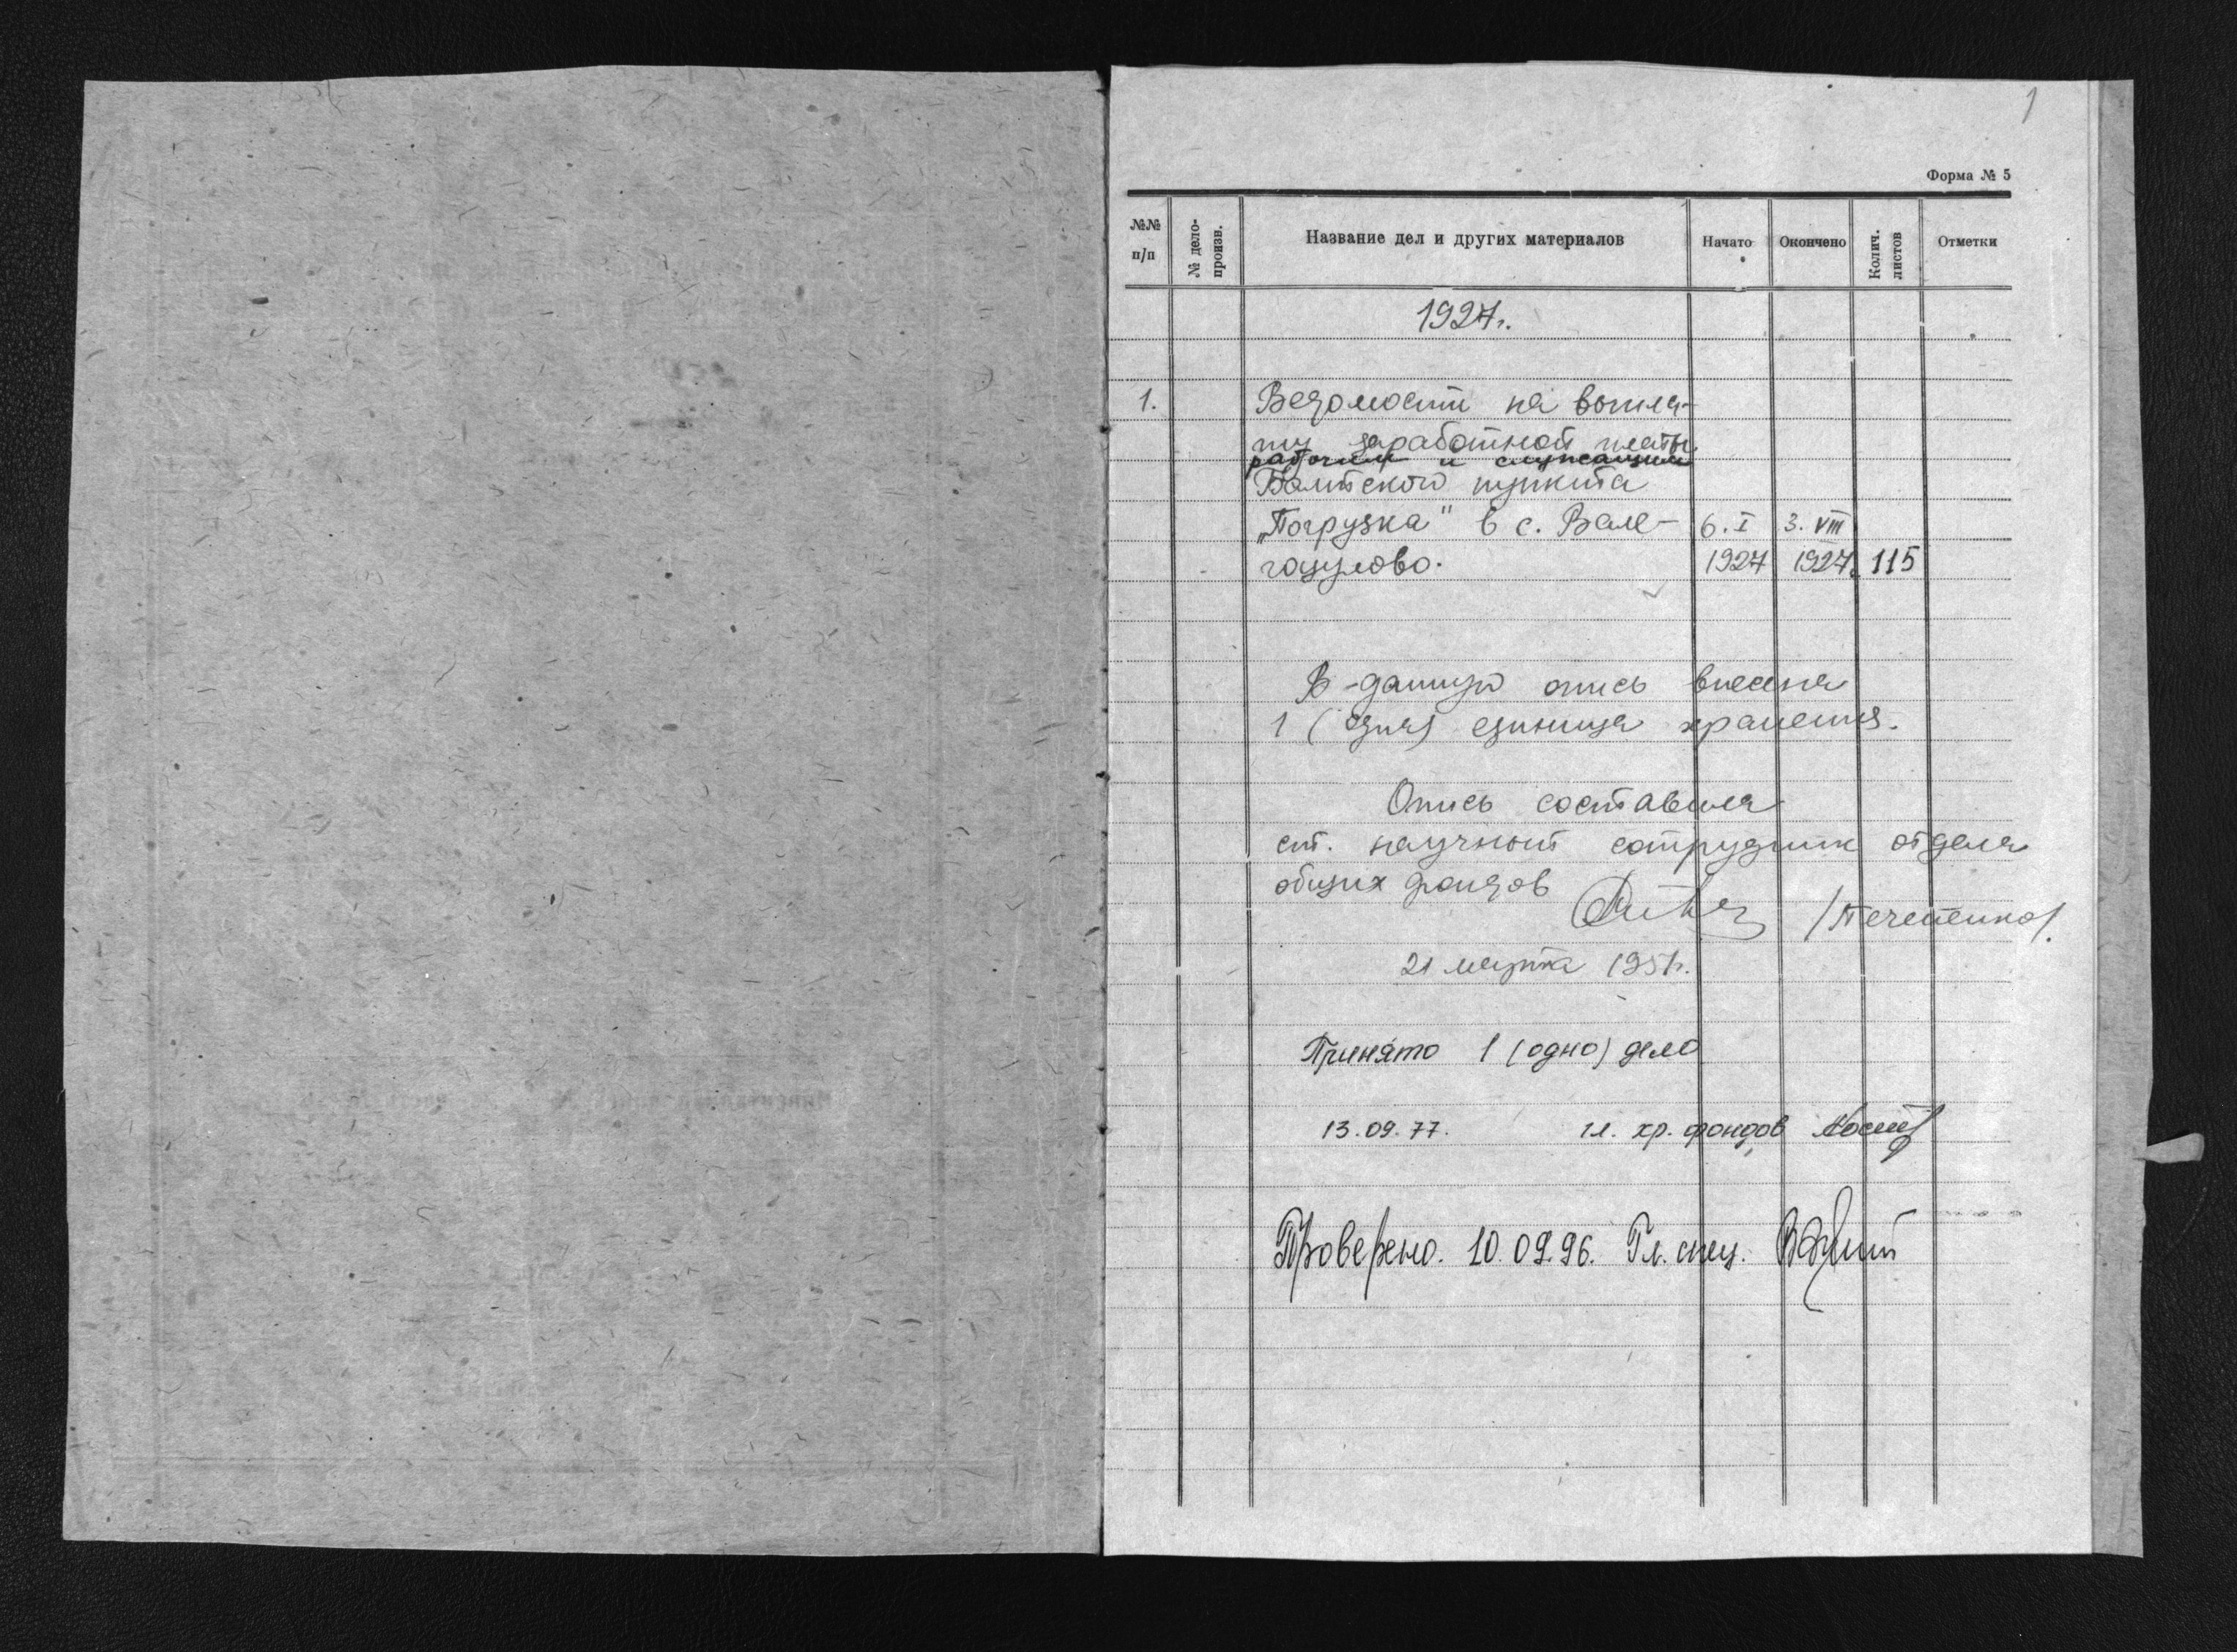 1
Форма № 5
№№ п/п
№ дело-произв.
Название дел и других материалов
Начато
Окончено
Колич. листов
Отметки
1927г.
1. Ведомости на выпла-
ту заработной платы
рабочим и служащим
Балтского пункта
„Погрузка" в с. Вале- 6. I 3. VIII
гоцулово. 1927 1927 115
В данную опись внесена
1 (одна) единица хранения.
Опись составила
ст. научный сотрудник отдела
общих фондов
21 марта 1951г.
Принято 1 (одно) дело
13.09.77. гл. хр. фондов
Проверено. 10.09.96. Гл. спец.